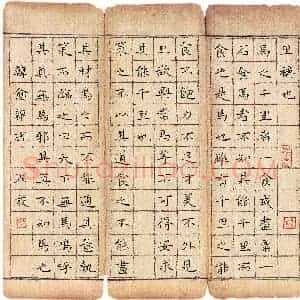 里稱也
馬之千里者一食或盡粟一
食也是馬也雖有千里之能
食不飽力不足才美不外見
且欲與常馬等不可得安求
其能千里也
策之不以其道食之不能盡
其材鳴之而不能通其意執
策而臨之曰天下無馬嗚呼
其真無馬邪其真不知馬也
韓愈雜說